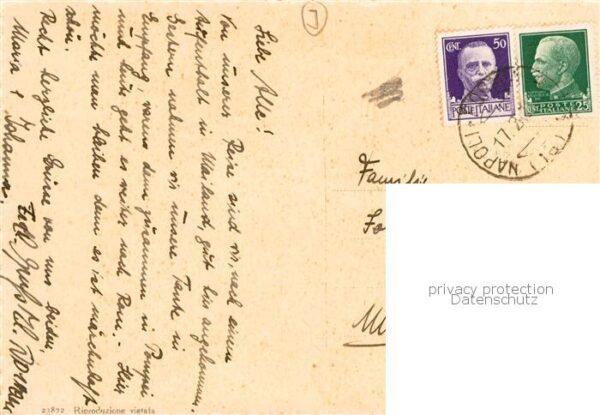 Liebe Alle!
Von unserer Reise sind wir, nach einem
Aufenthalt in Mailand, gut hier angekommen.
Gestern nahmen wir unsere Tante in
Empfang, waren dann zusammen in Pompei
und heute geht es weiter nach Rom. - Hier
möchte man bleiben denn es ist märchenhaft
schön.
Recht herzliche Grüße von uns beiden,
Maria & Johanna.
23892 Riproduzione vietata
CENT. 50
POSTE ITALIANE
POSTE ITALIANE
CENT. 25
NAPOLI
17.2
Familie
privacy protection
Datenschutz